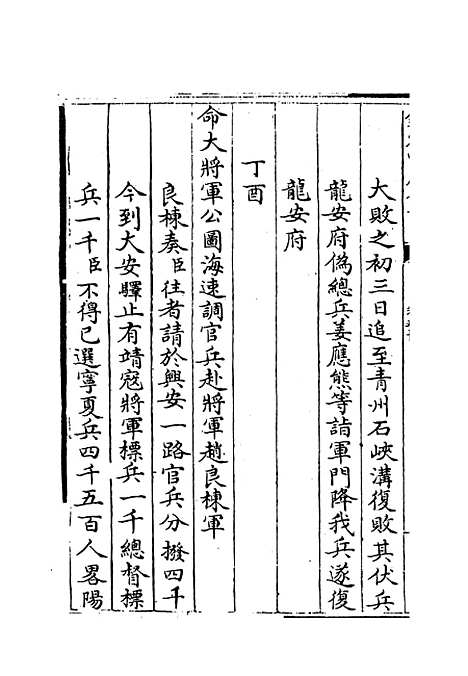 大敗之初三日追至青州石峽溝復敗其伏兵
龍安府僞總兵姜應熊等詣軍門降我兵遂復
龍安府
丁酉
命大將軍公圖海速調官兵赴將軍趙良棟軍
良棟奏臣往者請於興安一路官兵分撥四千
今到大安驛止有靖寇將軍標兵一千總督標
兵一千臣不得已選寧夏兵四千五百人畧陽